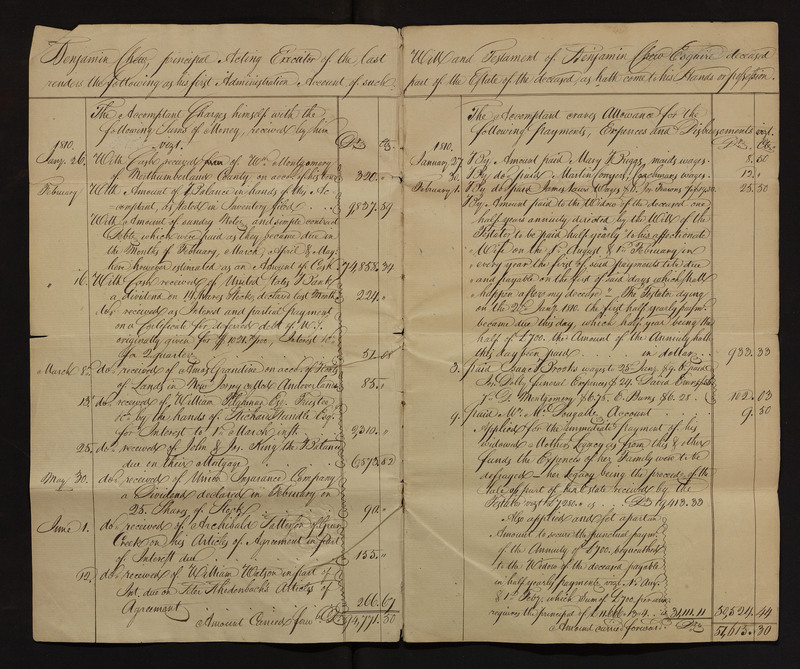 Benjamin Chew, principal Acting Executor of the last
Will and Testament of Benjamin Chew Esquire deceased
renders the following as his first Administration Account of such
part of the Estate of the deceased as hath come to his Hands or possession.
The Accomptant Charges himself with the
following Sums of Money, received by him
vizt.
Ds Cts.
1810.
Jany. 26. With Cash received from of Wm. Montgomery
of Northumberland County on accot. of his
320. "
February With Amount of Balance in hands of this Ac-
-comptant, as stated in Inventory filed
9827.59
With Amount of sundry Notes and simple contract
Debts, which were paid as they became due in
the Months of February, March, April & May
here however estimated as an Amount of Cash
74,858.34
" 16. With Cash received of United States Bank
a dividend on Shares Stock, declared last Month
224. "
do. received as Interest and partial payment
on a Certificate for deferred debt of U.S.
originally given for
for 2 quarters
51.68
March 8. do. received of Amos Grandine on accot. of
of Lands in New Jersey called Andover
85. "
13. do. received of William Tilghman Esq. Trustee
&c. by the hands of Richard Rundle Esq.
for Interest to 1st. March inst.
9310. "
25. do. received of John & Jos. King the Balance
due on their Mortgage
6,572.82
May 30. do. received of Union Insurance Company
a Dividend declared in February on
25. Shares of Stock
90. "
June 1. do. received of Archibald Patterson of
Creek on his Articles of Agreement in part
of Interest due
155. "
12. do. received of William Watson in part of
Int. due on Peter Articles of
Agreement
266.67
Amount Carried forwd. Ds
The Accomptant craves Allowance for the
following payments, Expences and Disbursements vizt.
Ds. Cts.
1810.
January 27 By Amount paid Mary Briggs, maids wages
8.50
By do. paid Martin Coachmans wages
12. "
February 1. By do. paid James wages
25.50
By Amount paid to the Widow of the deceased one
half years annuity directed by the Will of the
Testator to be paid half yearly to his affectionate
Wife on the 1st. August & 1st. February in
every year the first of said payments to be due
and payable on the first of said days which shall
happen after my decease. The Testator dying
on the Jany. 1810. the first half yearly paymt.
became due this day, which half year being the
half of £700. the Amount of the Annuity hath
this day been paid in dollars
933.33
3. paid Isaac Brooks wages to 25. Jany.
General Expences $24. David
Montgomery $6.75. E. Burns $6.28
102.03
9. paid Mr. Account
9.50
Applied for the immediate payment of his
widowed Mother's Legacy as from this & other
funds the Expences of her Family were to be
defrayed - her Legacy being the proceeds of the
Sale of part of real Estate received by the
Testator
Also applied and set apart an
Amount to secure the punctual paymt.
of the Annuity of £700. bequeathed
to the Widow of the deceased payable
in half yearly payments vizt. 1st. Augt.
& 1st. Feby. which Sum of £700. per ann.
requires the principal of £11,666.13.4 is 31,111.11
50,524.44
Amount carried forward Ds
51,615.30